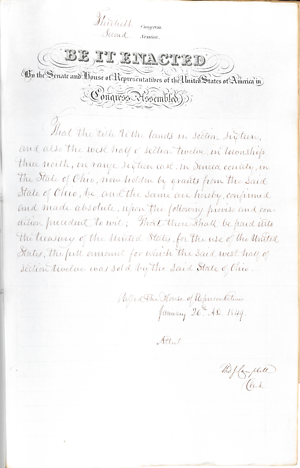 Thirtieth Congress
Second Session
BE IT ENACTED
By the Senate and House of Representatives of the United States of America in
Congress Assembled,
That the title to the lands in section sixteen,
and also the west half of section twelve, in township
three north, in range sixteen east, in Seneca county, in
the State of Ohio, now holden by grants from the said
State of Ohio, be, and the same are hereby, confirmed
and made absolute, upon the following proviso and con-
dition precedent to wit; That there shall be paid into
the treasury of the United States, for the use of the United
States, the full amount for which the said west half of
section twelve was sold by the said State of Ohio.
Passed the House of Representatives
January 26th AD 1849.
Attest
Tho J Campbell
Clerk